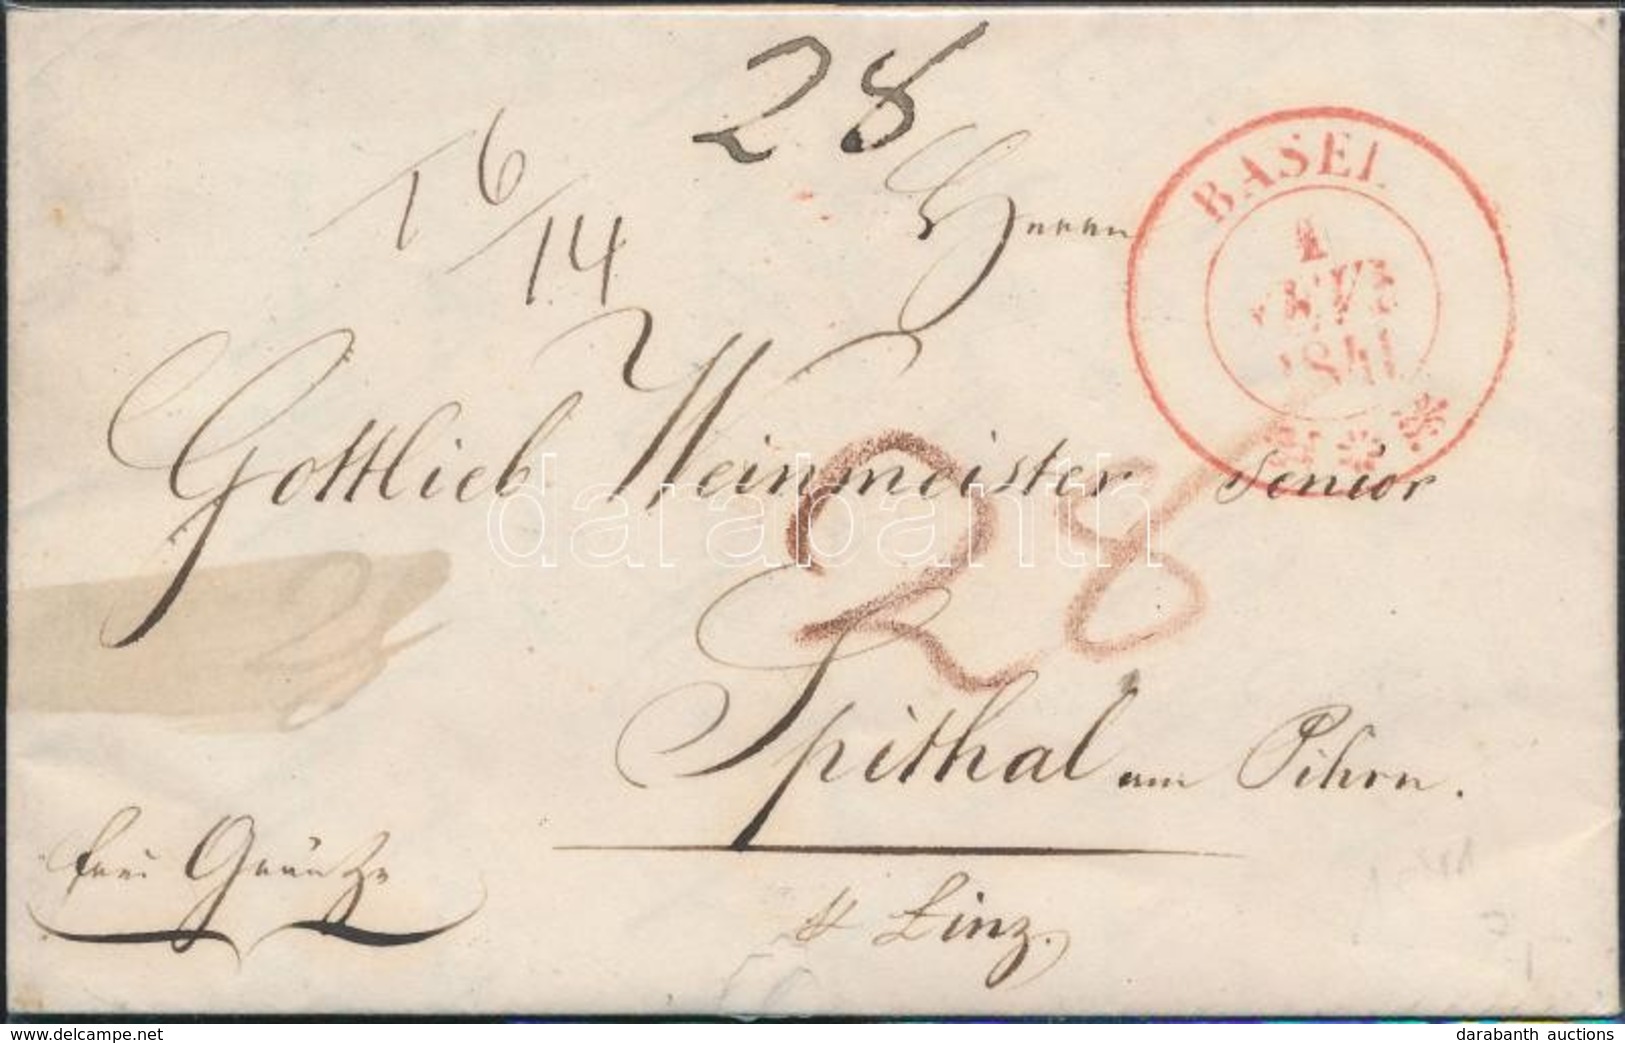 28
16/14
BASEL
1
1841
Herrn
Gottlieb Weinmeister Senior
darabanth
28
Spithal am Pihrn.
frei Gräntze
Linz.
www.delcampe.net
darabanth auctions